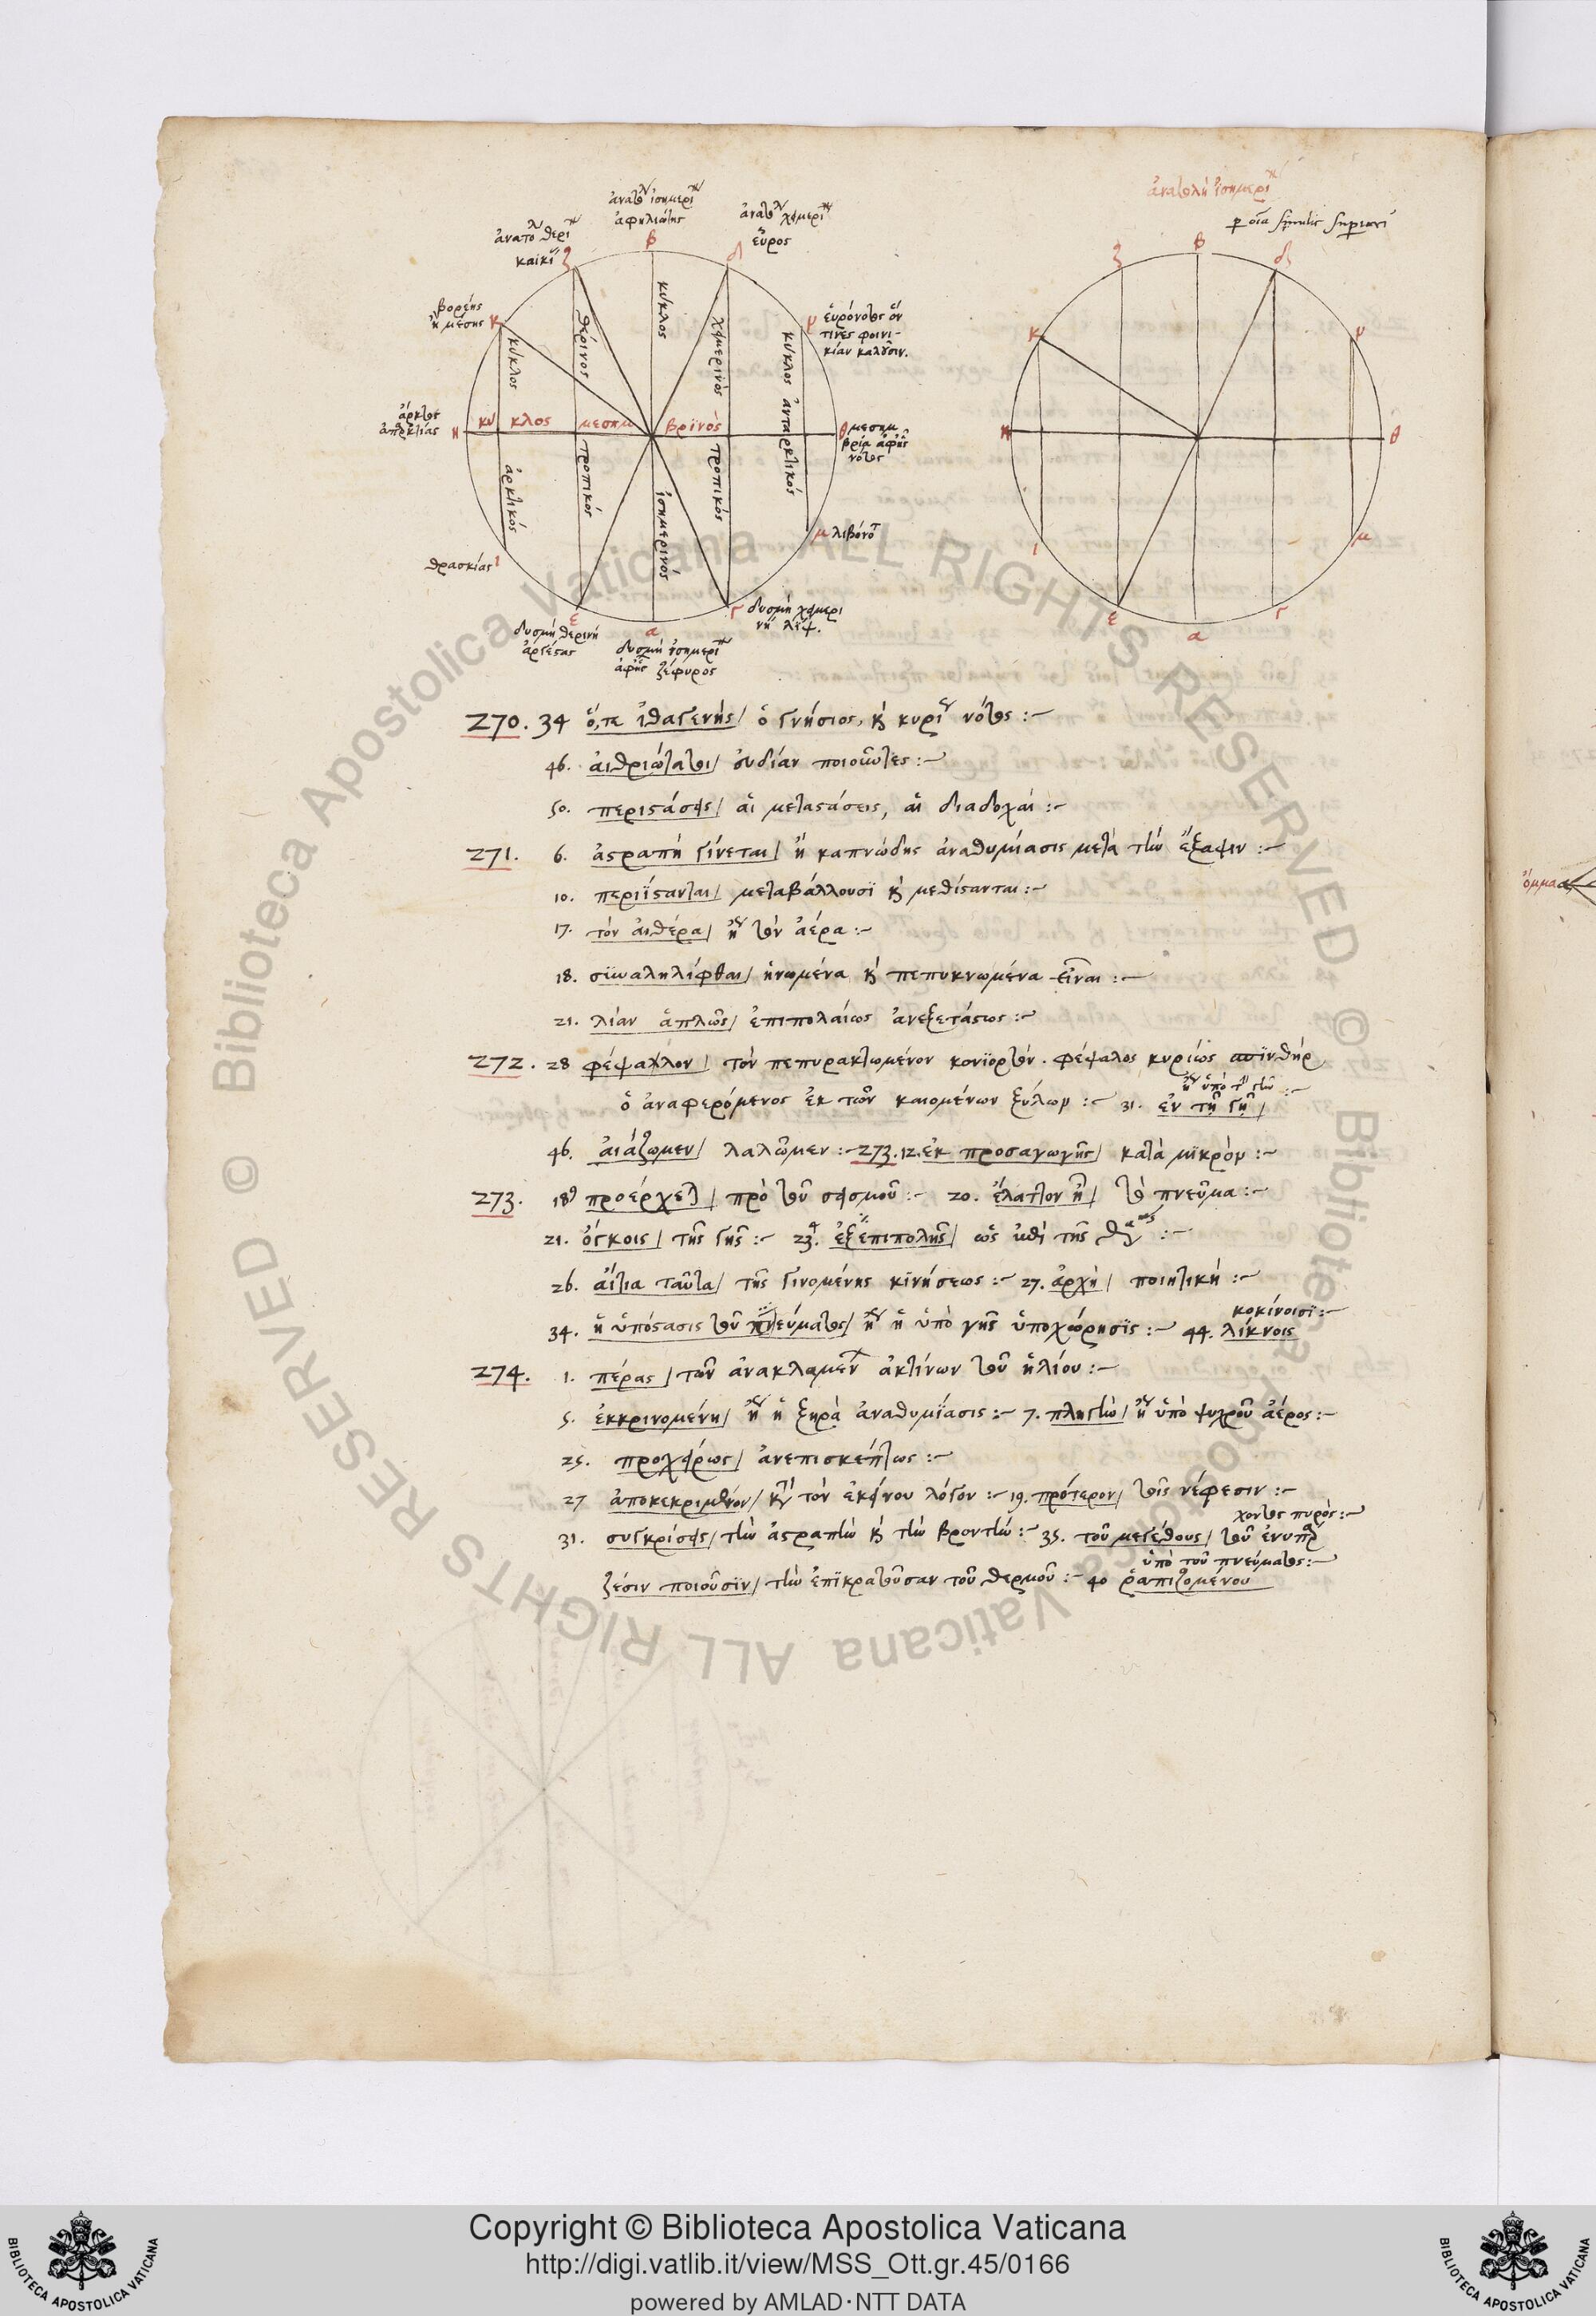 ἀνατολὴ ἰσημερι
ἀφηλιώτης
εὖρος
καικί
β
ζ
δ
κ
ν
βορέης
ἢ μέσης
εὐρόνοτος ὅν
τινες φοινι-
κίαν καλοῦσιν.
κύκλος
θέρινος
κύκλος
χειμερινὸς
κύκλος ἀνταρκτικός
ἄρκτος
ἀπαρκτίας
η
κύ κλος μεσημ βρινὸς
θ
μεσημ
βρία
νότος
ἀρκτικός
τροπικός
ἰσημερινός
τροπικός
μ λιβόνο
θρασκίας ι
ε
α
γ
δυσμὴ χειμερι
νή λίψ.
δυσμὴ θερινὴ
ἀργέστας
δυσμὴ ἰσημερι
ζέφυρος
ζ β δ
κ ν
η θ
ι μ
ε α γ
270. 34 ὅ, τε ἰθαγενὴς/ ὁ γνήσιος, καὶ κυρί νότος :-
46. αἰθριώταται/ εὐδίαν ποιοῦντες :-
50. περιστάσεις/ αἱ μεταστάσεις, αἱ διαδοχαί :-
271. 6. ἀστραπὴ γίνεται/ ἡ καπνώδης ἀναθυμίασις μετὰ τὴν ἔξαψιν :-
10. περιΐστανται/ μεταβάλλουσϊ καὶ μεθίστανται :-
17. τὸν αἰθέρα/ ἤγουν τὸν ἀέρα :-
18. συναληλίφθαι/ ἡνωμένα καὶ πεπυκνωμένα εἶναι :-
21. λίαν ἁπλῶς/ ἐπιπολαίως ἀνεξετάστως :-
272. 28 φέψαλον/ τὸν πεπυρακτωμένον κονϊορτόν. φέψαλος κυρίως σπινθήρ
ὁ ἀναφερόμενος ἐκ τῶν καιομένων ξύλων :- 31. ἐν τῇ γῇ/
46. αἰάζωμεν/ λαλῶμεν :- 273. 12. ἐκ προσαγωγῆς/ κατὰ μϊκρόν :-
273. 18 προέρχεται/ πρὸ τοῦ σεισμοῦ :- 20. ἔλαττον ᾖ/ τὸ πνεῦμα :-
21. ὄγκοις/ τῆς γῆς :- 23. ἐξεπιπολῆς/ ὡς ἐπὶ τῆς :-
26. αἴτια ταῦτα/ τῆς γινομένης κϊνήσεως :- 27. ἀρχὴ/ ποιητικὴ :-
κοκίνοισϊ :-
34. ἡ ὑπόστασις τοῦ πνεύματος/ ἤγουν ἡ ὑπὸ γῆς ὑποχώρησϊς :- 44. λίκνοις
274. 1. πέρας/ τῶν ἀνακλαμέν ἀκτίνων τοῦ ἡλίου :-
5. ἐκκρινομένη/ ἤγουν ἡ ξηρὰ ἀναθυμίασις :- 7. πληγὴν/ ἤγουν ὑπὸ ψυχροῦ ἀέρος :-
25. προχείρως/ ἀνεπισκέπτως :-
27 ἀποκεκριμένον/ κατὰ τὸν ἐκείνου λόγον :- 19. πρότερον/ τοῖς νέφεσιν :-
χοντος πυρὸς :-
31. συγκρίσεις/ τὴν ἀστραπὴν καὶ τὴν βροντήν :- 35. τοῦ μεγέθους/ τοῦ ἐνυπάρ
ὑπὸ τοῦ πνεύματος :-
ζέσιν ποιοῦσϊν/ τὴν ἐπϊκρατοῦσαν τοῦ θερμοῦ :- 40 ῥαπιζομένου
ὄμμα
Copyright © Biblioteca Apostolica Vaticana
http://digi.vatlib.it/view/MSS_Ott.gr.45/0166
powered by AMLAD·NTT DATA
BIBLIOTECA APOSTOLICA VATICANA
BIBLIOTECA APOSTOLICA VATICANA
© Biblioteca Apostolica Vaticana ALL RIGHTS RESERVED
© Biblioteca Apostolica Vaticana ALL RIGHTS RESERVED